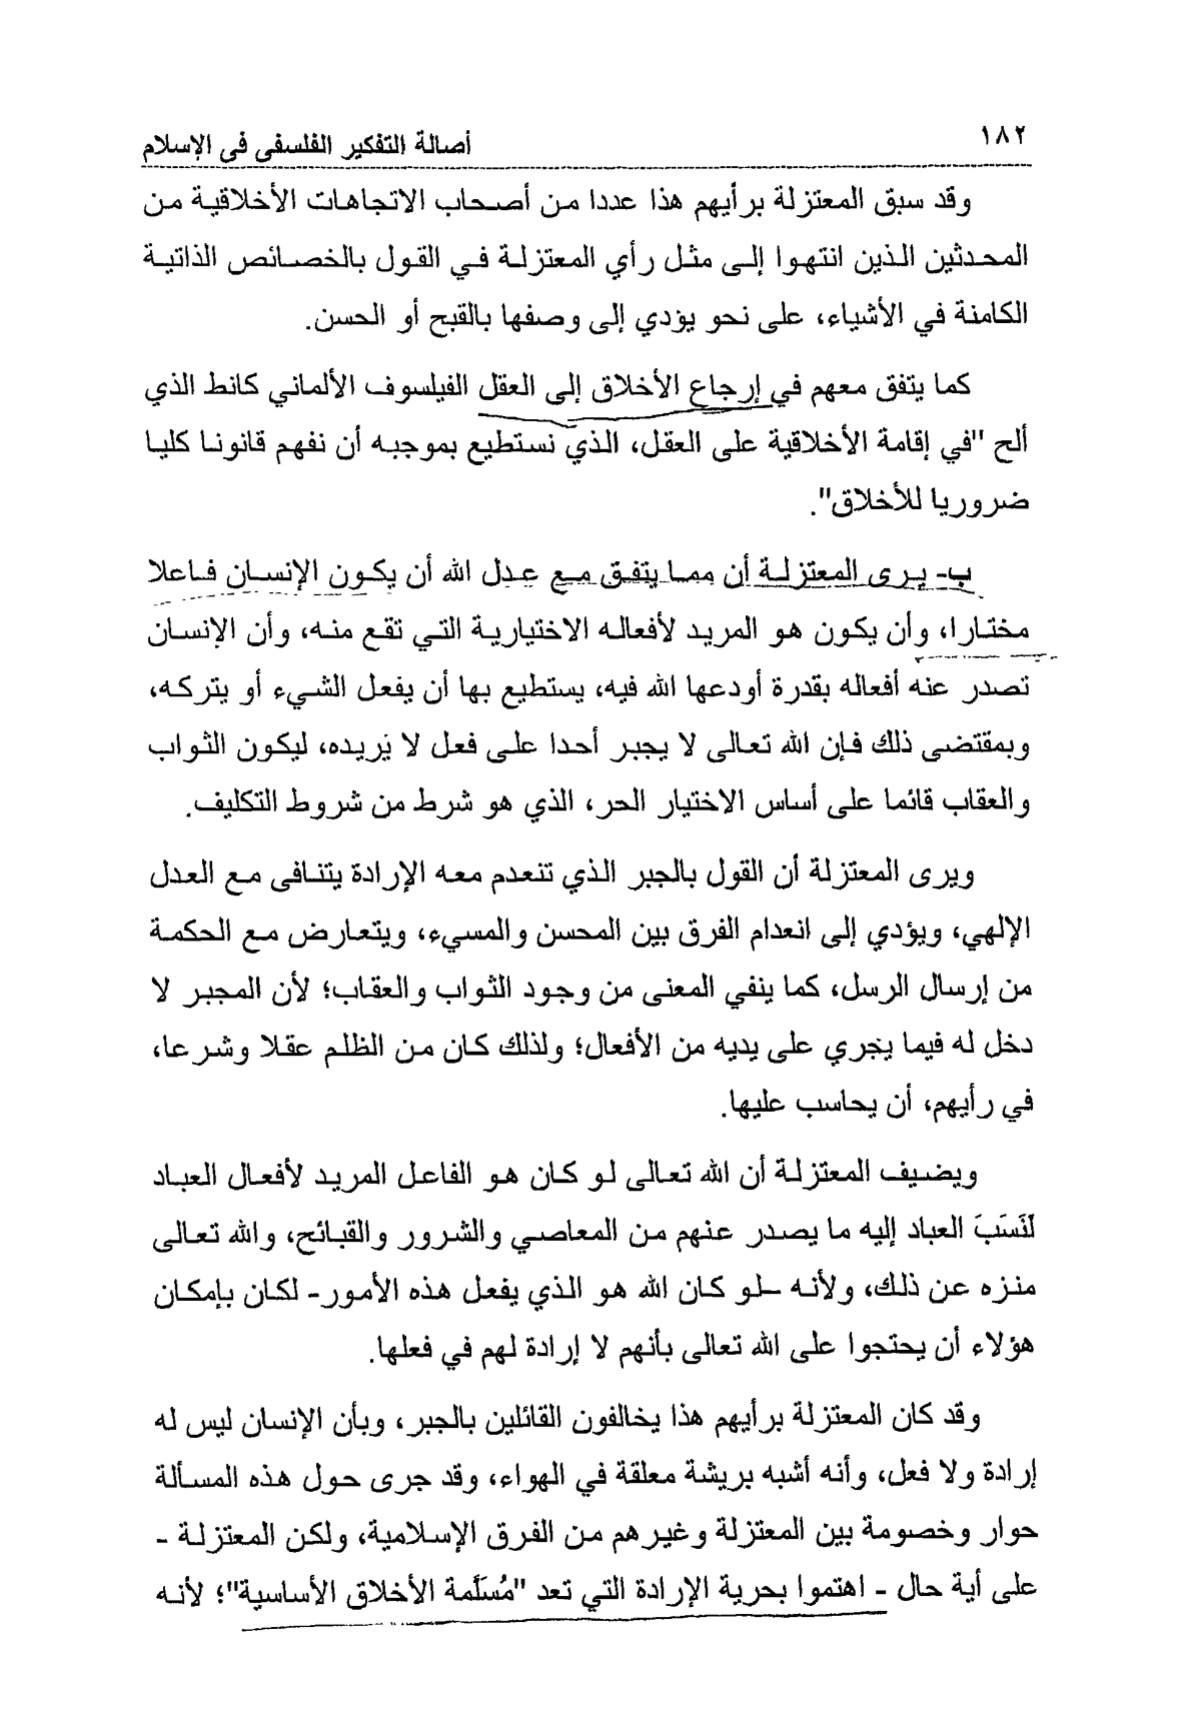 ١٨٢
أصالة التفكير الفلسفى فى الإسلام
وقد سبق المعتزلة برأيهم هذا عددا من أصحاب الاتجاهات الأخلاقية من
المحدثين الذين انتهوا إلى مثل رأي المعتزلة في القول بالخصائص الذاتية
الكامنة في الأشياء، على نحو يؤدي إلى وصفها بالقبح أو الحسن.
كما يتفق معهم في إرجاع الأخلاق إلى العقل الفيلسوف الألماني كانط الذي
ألح "في إقامة الأخلاقية على العقل، الذي نستطيع بموجبه أن نفهم قانونا كليا
ضروريا للأخلاق".
ب- يرى المعتزلة أن مما يتفق مع عدل الله أن يكون الإنسان فاعلا
مختارا، وأن يكون هو المريد لأفعاله الاختيارية التي تقع منه، وأن الإنسان
تصدر عنه أفعاله بقدرة أودعها الله فيه، يستطيع بها أن يفعل الشيء أو يتركه،
وبمقتضى ذلك فإن الله تعالى لا يجبر أحدا على فعل لا يريده، ليكون الثواب
والعقاب قائما على أساس الاختيار الحر، الذي هو شرط من شروط التكليف.
ويرى المعتزلة أن القول بالجبر الذي تنعدم معه الإرادة يتنافى مع العدل
الإلهي، ويؤدي إلى انعدام الفرق بين المحسن والمسيء، ويتعارض مع الحكمة
من إرسال الرسل، كما ينفي المعنى من وجود الثواب والعقاب؛ لأن المجبر لا
دخل له فيما يجري على يديه من الأفعال؛ ولذلك كان من الظلم عقلا وشرعا،
في رأيهم، أن يحاسب عليها.
ويضيف المعتزلة أن الله تعالى لو كان هو الفاعل المريد لأفعال العباد
لَنَسَبَ العباد إليه ما يصدر عنهم من المعاصي والشرور والقبائح، والله تعالى
منزه عن ذلك، ولأنه -لو كان الله هو الذي يفعل هذه الأمور- لكان بإمكان
هؤلاء أن يحتجوا على الله تعالى بأنهم لا إرادة لهم في فعلها.
وقد كان المعتزلة برأيهم هذا يخالفون القائلين بالجبر، وبأن الإنسان ليس له
إرادة ولا فعل، وأنه أشبه بريشة معلقة في الهواء، وقد جرى حول هذه المسألة
حوار وخصومة بين المعتزلة وغيرهم من الفرق الإسلامية، ولكن المعتزلة -
على أية حال - اهتموا بحرية الإرادة التي تعد "مُسَلَّمة الأخلاق الأساسية"؛ لأنه